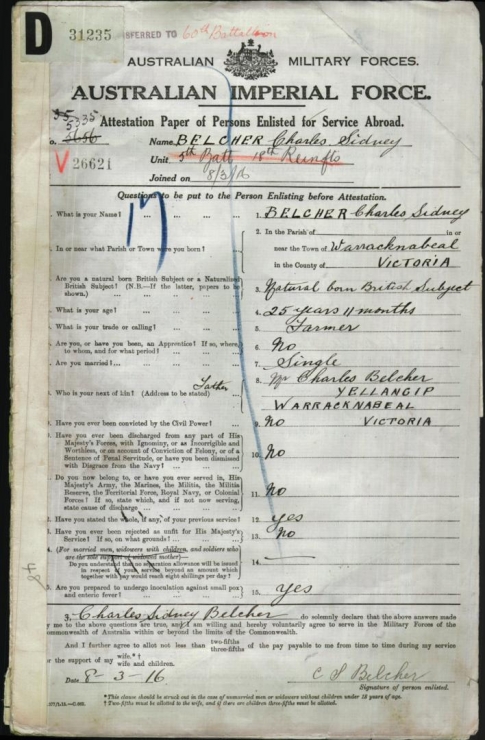 D 31235 SFERRED TO 60th Battalion
AUSTRALIAN MILITARY FORCES.
AUSTRALIAN IMPERIAL FORCE.
Attestation Paper of Persons Enlisted for Service Abroad.
5335
o. Name BELCHER Charles Sidney
V 26621 Unit 5th Batt 18th Reinfts
Joined on 8/3/16
Questions to be put to the Person Enlisting before Attestation.
17
What is your Name? ... ... ... 1. BELCHER Charles Sidney
2. In the Parish of in or
In or near what Parish or Town were you born? near the Town of Warracknabeal
in the County of VICTORIA
Are you a natural born British Subject or a Naturalised
British Subject? (N.B.—If the latter, papers to be
shown.) 3. Natural born British Subject
What is your age? 4. 25 years 11 months
What is your trade or calling? 5. Farmer
Are you, or have you been, an Apprentice? If so, where,
to whom, and for what period? 6. No
Are you married? 7. Single
Father 8. Mr Charles Belcher
Who is your next of kin? (Address to be stated) YELLANGIP
WARRACKNABEAL
Have you ever been convicted by the Civil Power? 9. No VICTORIA
Have you ever been discharged from any part of His
Majesty's Forces, with Ignominy, or as Incorrigible and
Worthless, or on account of Conviction of Felony, or of a
Sentence of Penal Servitude, or have you been dismissed
with Disgrace from the Navy? 10. No
Do you now belong to, or have you ever served in, His
Majesty's Army, the Marines, the Militia, the Militia
Reserve, the Territorial Force, Royal Navy, or Colonial
Forces? If so, state which, and if not now serving,
state cause of discharge 11. No
Have you stated the whole, if any, of your previous service? 12. yes
Have you ever been rejected as unfit for His Majesty's
Service? If so, on what grounds? 13. No
(For married men, widowers with children, and soldiers who
are the sole support of widowed mother)—
Do you understand that no separation allowance will be issued
in respect of your service beyond an amount which
together with pay would reach eight shillings per day? 14. —
Are you prepared to undergo inoculation against small pox
and enteric fever? 15. Yes
Charles Sidney Belcher do solemnly declare that the above answers made
by me to the above questions are true, and I am willing and hereby voluntarily agree to serve in the Military Forces of the
Commonwealth of Australia within or beyond the limits of the Commonwealth.
And I further agree to allot not less than two-fifths three-fifths of the pay payable to me from time to time during my service
for the support of my wife.*† wife and children.
Date 8-3-16 C S Belcher
Signature of person enlisted.
*This clause should be struck out in the case of unmarried men or widowers without children under 18 years of age.
†Two-fifths must be allotted to the wife, and if there are children three-fifths must be allotted.